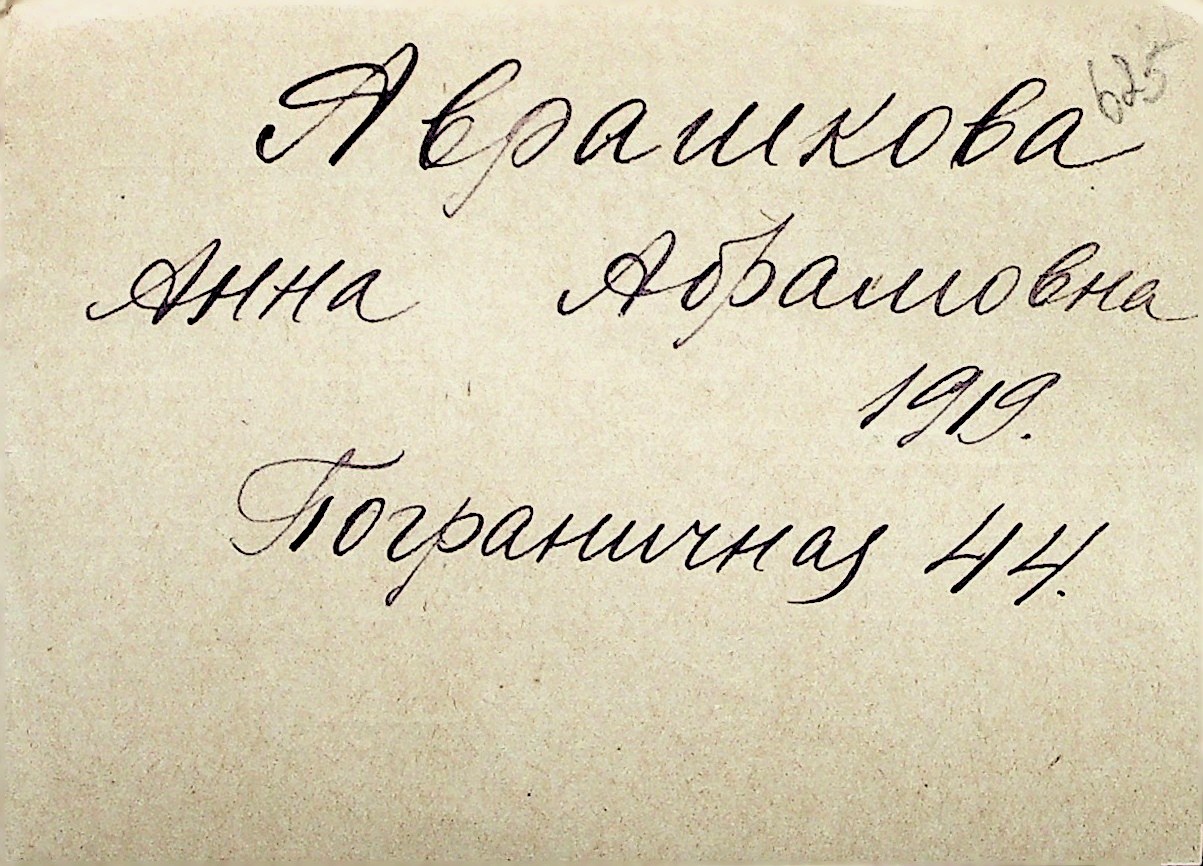 625
Аврашкова
Анна Абрамовна
1919.
Пограничная 44.